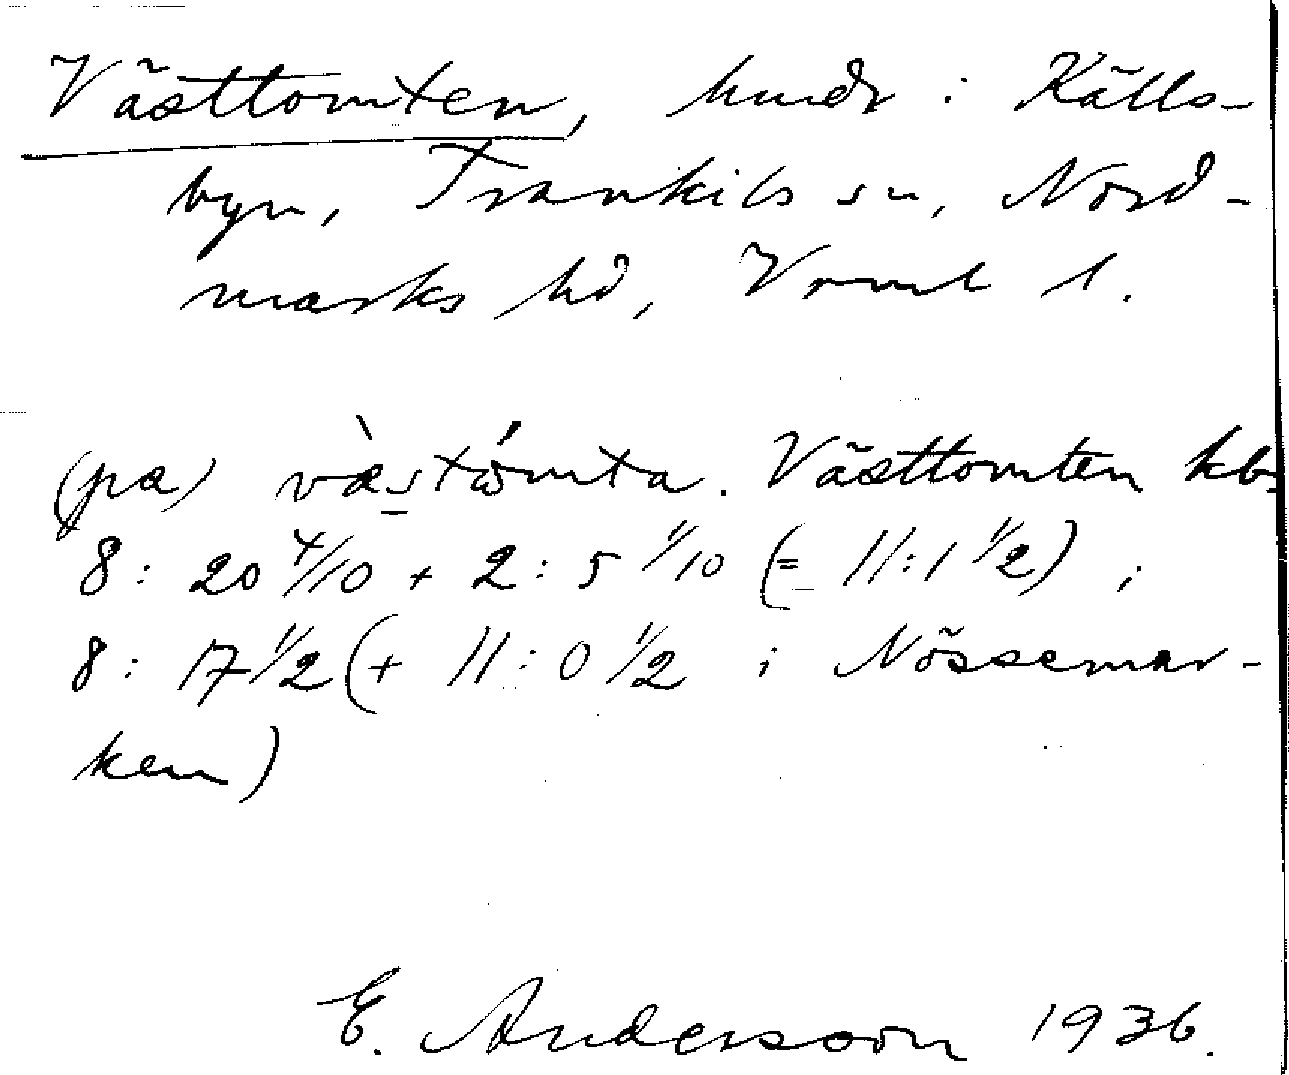 Västtomten, hmdr i Källs-
byn, Trankils sn, Nord-
marks hd, Vrml l.
(pa) vàstómta. Västtomten kb
8:20 4/10 + 2:5 1/10 (= 11:1 1/2) i
8:17 1/2 (+ 11:0 1/2 i Nössemar-
ken)
E. Andersson 1936.